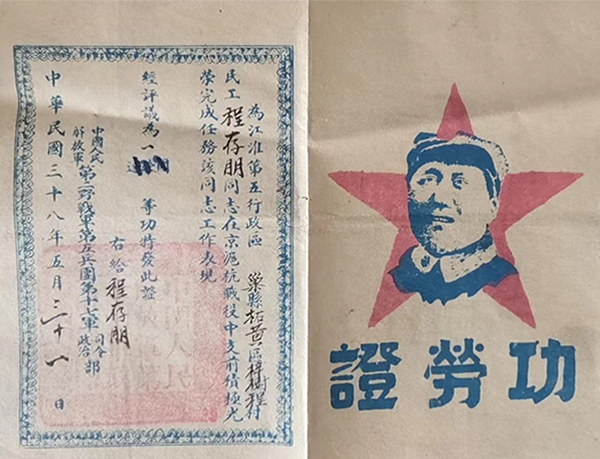 為江淮第五行政區巢縣柘黄區梓樹程村
民工程存朋同志在京滬杭戰役中支前積極光
榮完成任務該同志工作表現
經評議為一等功特發此證
右給程存朋
中國人民解放軍第二野戰軍第五兵團第十七軍司令政治部
中華民國三十八年五月三十一日
功勞證